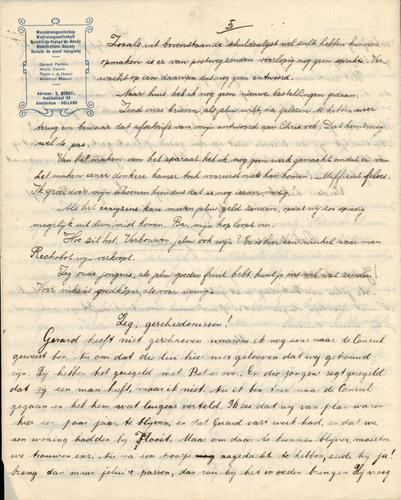 Wereldreisgezelschap
Weltreisegesellschaft
Société du Voyage du Monde
Globetrotters-Society
Gerard Perfors
Marie Zwarts
Adres: G. MUNKEL,
Amsterdam - HOLLAND
5
Zooals uit bovenstaande schuldenlijst wel zult hebben kunnen
opmaken is er van postwegzenden voorlopig nog geen sprake. Ver-
wacht op een daarvan dus nog geen antwoord.
Maar huil heb ik nog geen nieuwe bestellingen gedaan.
Zend onze brieven, als jelui wilt, na gelezen te hebben weer
terug en bewaar dat afschrift van mijn antwoord aan Chris ook. Dat komt nog
wel te pas.
Van het maken van het apparaat heb ik nog geen werk gemaakt omdat er van
het maken eener donkere kamer toch voorereerst niets kan komen.
Ik groei door mijn schoenen heen dus dat is nog eerder noodig.
Als het eenigszins kan moeten jelui geld zenden, opdat wij zoo spoedig
mogelijk uit dien mist komen. Bar, mijn kop loopt om.
Hoe zit het. Verbouwen jelui ook wijn? Er is hier een winkel waar men
Rechobot wijn verkoopt.
Zeg oude jongens, als jelui goedkoop fruit hebt kun je ons wel wat zenden.
Voor niks is goedkooper als voor weinig.
Zeg, geschiedenissen!
Gerard heeft niet geschreven waarom ik nog eens naar de Consul
geweest ben. Nu om dat die lui hier niet gelooven dat wij getrouwd
zijn. Zij hebben het geregeld met Piet er over. En die jongen zegt geregeld
dat zij een man heeft, maar ik niet. Nu ik ben toen naar de Consul
gegaan en heb hem wat leugens verteld. Ik zei dat wij van plan waren
hier een paar jaar te blijven, en dat Gerard vast werk had, en dat we
een woning hadden bij Flooit. Maar om daar te kunnen blijven moesten
we trouwen enz. Nu na een poosje nagedacht te hebben, zeide hij ja!
breng dan maar jelui's passen, dan zou hij het in orde brengen. Hij vroeg